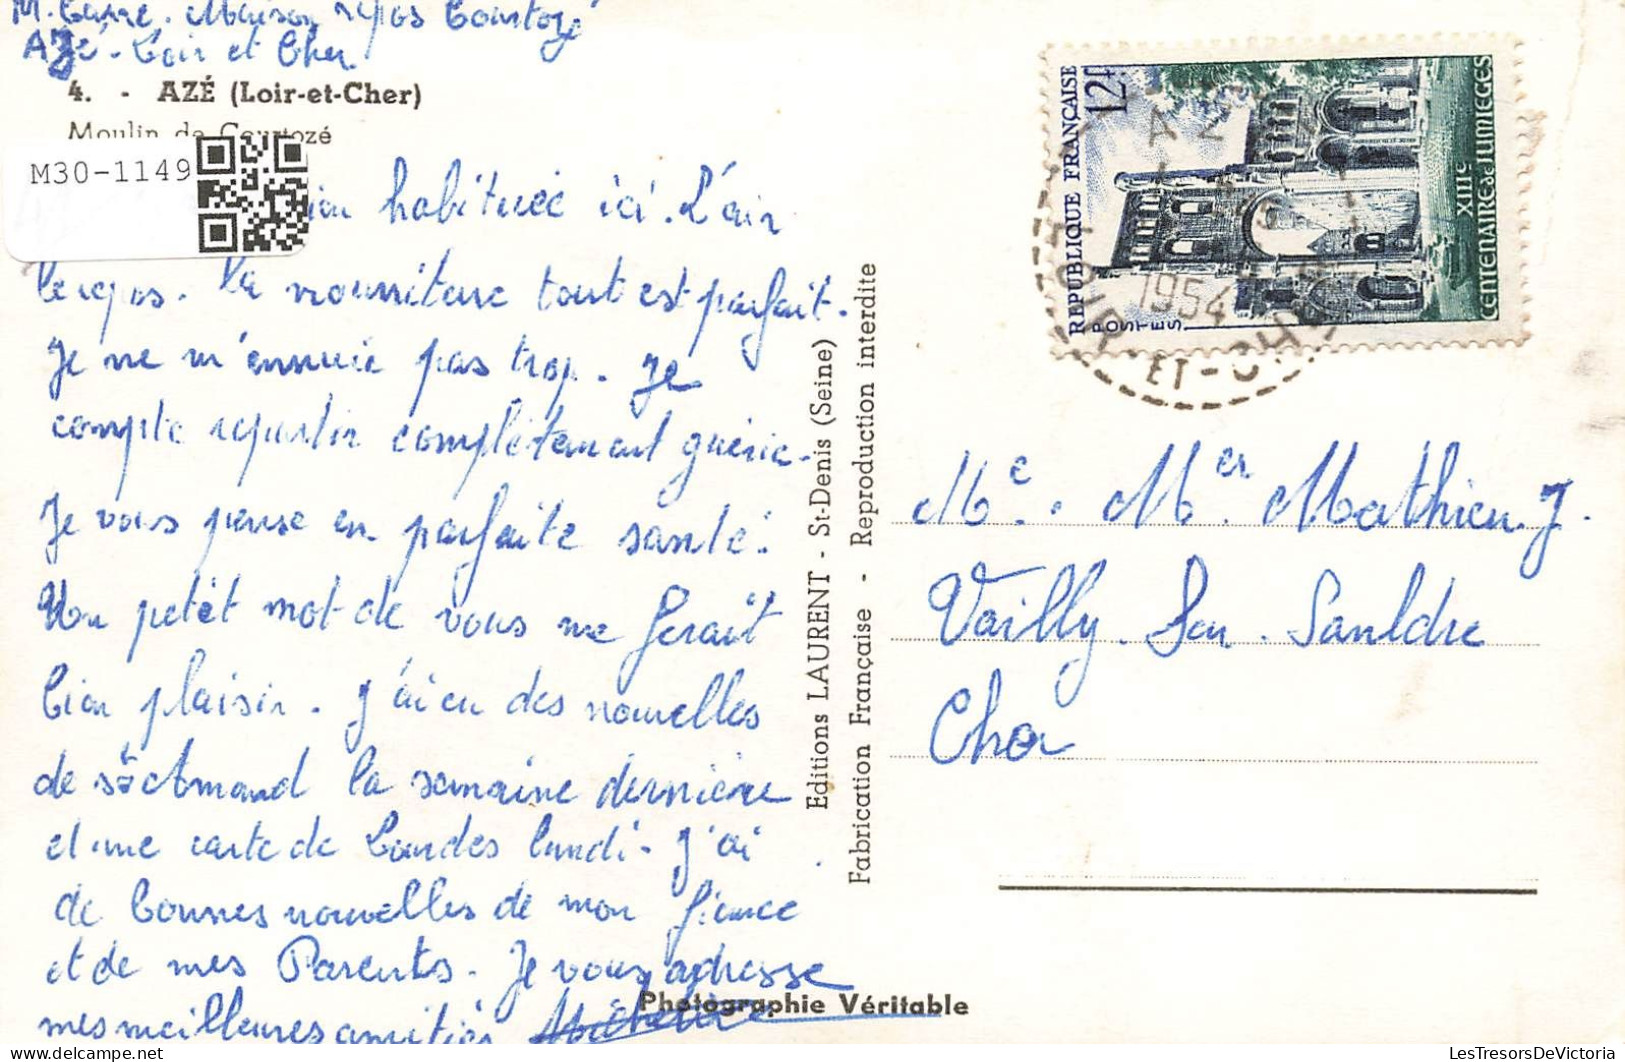 Maison repos Courtozé
Azé - Loir et Cher
4. - AZÉ (Loir-et-Cher)
Moulin de Courtozé
M30-1149
habituée ici. L'air
le repos. la nourriture tout est parfait.
Je ne m'ennuie pas trop. Je
compte repartir complètement guérie.
Je vous pense en parfaite santé.
Un petit mot de vous me ferait
bien plaisir. J'ai eu des nouvelles
de la semaine dernière
et une carte de Lourdes lundi. J'ai
de bonnes nouvelles de mon fiance
et de mes Parents. Je vous adresse
mes meilleures amitiés
Photographie Véritable
Editions LAURENT - St-Denis (Seine)
Fabrication Française - Reproduction interdite
RÉPUBLIQUE FRANÇAISE
12F
POSTES
XIIIe
CENTENAIRE de JUMIÈGES
AZÉ
1954
LOIR-ET-CHER
Me. Mer Mathieu. J.
Vailly. Sur. Sauldre
Cher
LesTresorsDeVictoria